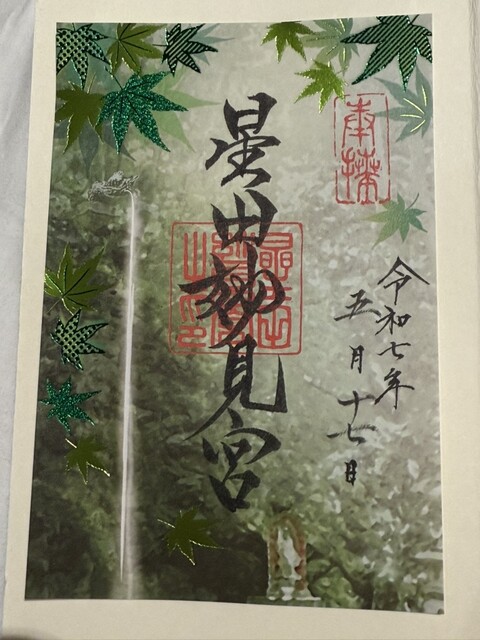 奉拝
令和七年
五月十七日
星田妙見宮